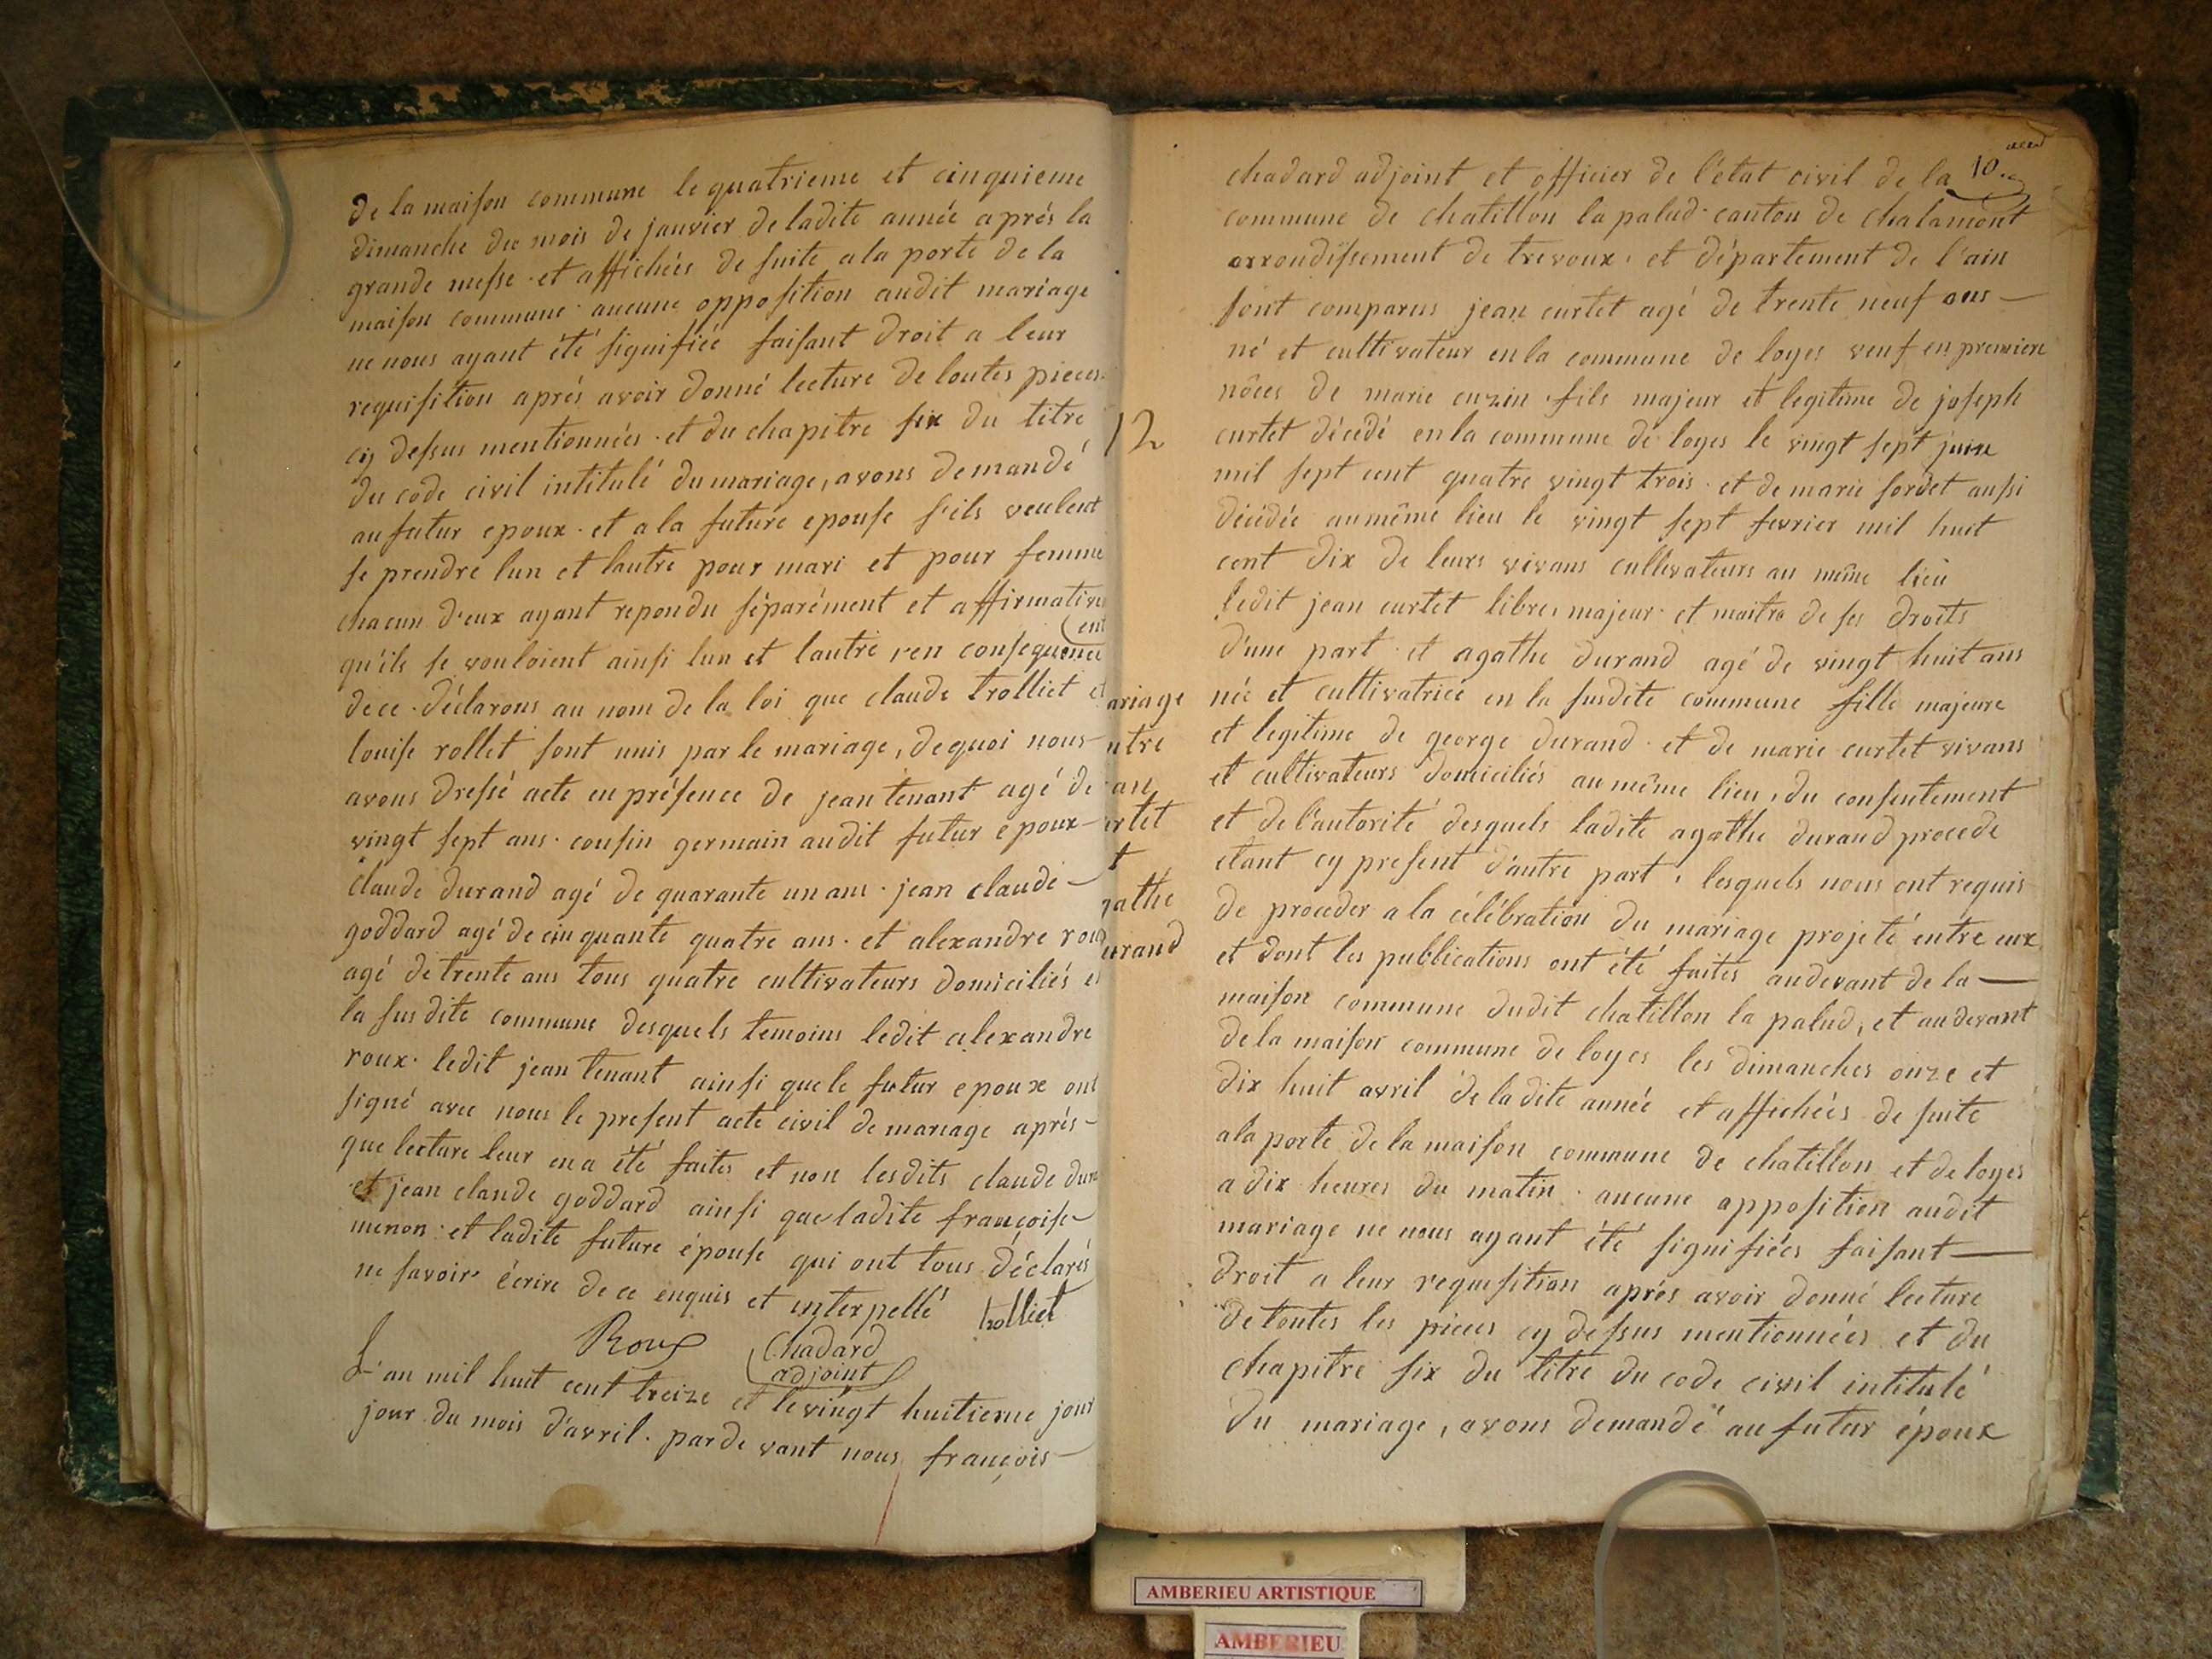 de la maison commune le quatrieme et cinquieme
dimanche du mois de janvier de ladite année après la
grande messe · et affichées de suite a la porte de la
maison commune · aucune opposition audit mariage
ne nous ayant été signifiée faisant droit a leur
requisition aprés avoir donné lecture de toutes pieces
cy dessus mentionnées · et du chapitre six du titre
du code civil intitulé du mariage, avons demandé
au futur epoux · et a la future epouse s'ils veulent
se prendre lun et lautre pour mari et pour femme
chacun d'eux ayant repondu séparément et affirmativem
ent
qu'ils se vouloient ainsi lun et lautre, en consequence
de ce · déclarons au nom de la loi que claude trolliet et
louise rollet sont unis par le mariage, de quoi nous
avons dressé acte en présence de jean tenant agé de
vingt sept ans · cousin germain audit futur epoux —
claude durand agé de quarante un ans · jean claude —
goddard agé de cinquante quatre ans · et alexandre roux
agé de trente ans tous quatre cultivateurs domiciliés en
la susdite commune desquels temoins ledit alexandre
roux · ledit jean tenant ainsi que le futur epoux ont
signé avec nous le present acte civil de mariage aprés —
que lecture leur en a été faites et non lesdits claude dura
et jean claude goddard ainsi que ladite françoise
menon · et ladite future épouse qui ont tous déclarés
ne savoir écrire de ce enquis et interpellé
trolliet
Roux
Chadard
adjoint
L'an mil huit cent treize et le vingt huitieme jour
jour du mois d'avril · par de vant nous françois —
10.
chadard adjoint et officier de l'état civil de la
commune de chatillon la palud · canton de chalamont
arrondissement de trevoux · et département de l'ain
sont comparus jean curtet agé de trente neuf ans —
né et cultivateur en la commune de loyes veuf en premiere
nôces de marie cuzin · fils majeur et legitime de joseph
12
curtet décédé en la commune de loyes le vingt sept juin
mil sept cent quatre vingt trois · et de marie sordet aussi
décédée au même lieu le vingt sept fevrier mil huit
cent dix de leurs vivans cultivateurs au même lieu
ledit jean curtet libre, majeur · et maitre de ses droits
d'une part · et agathe durand agé de vingt huit ans
ariage
ntre
an
rtet
t
gathe
urand
née et cultivatrice en la susdite commune fille majeure
et legitime de george durand · et de marie curtet vivans
et cultivateurs domiciliés au même lieu, du consentement
et de l'autorité desquels ladite agathe durand procede
etant cy present d'autre part, lesquels nous ont requis
de proceder a la célébration du mariage projeté entre eux
et dont les publications ont été faites audevant de la —
maison commune dudit chatillon la palud, et audevant
de la maison commune de loyes les dimanches onze et
dix huit avril de ladite année et affichées de suite
a la porte de la maison commune de chatillon et de loyes
a dix heures du matin · aucune opposition audit
mariage ne nous ayant été signifiées faisant —
droit a leur requisition aprés avoir donné lecture
de toutes les pieces cy dessus mentionnées et du
chapitre six du titre du code civil intitulé
du mariage, avons demandé au futur époux
AMBERIEU ARTISTIQUE
AMBERIEU